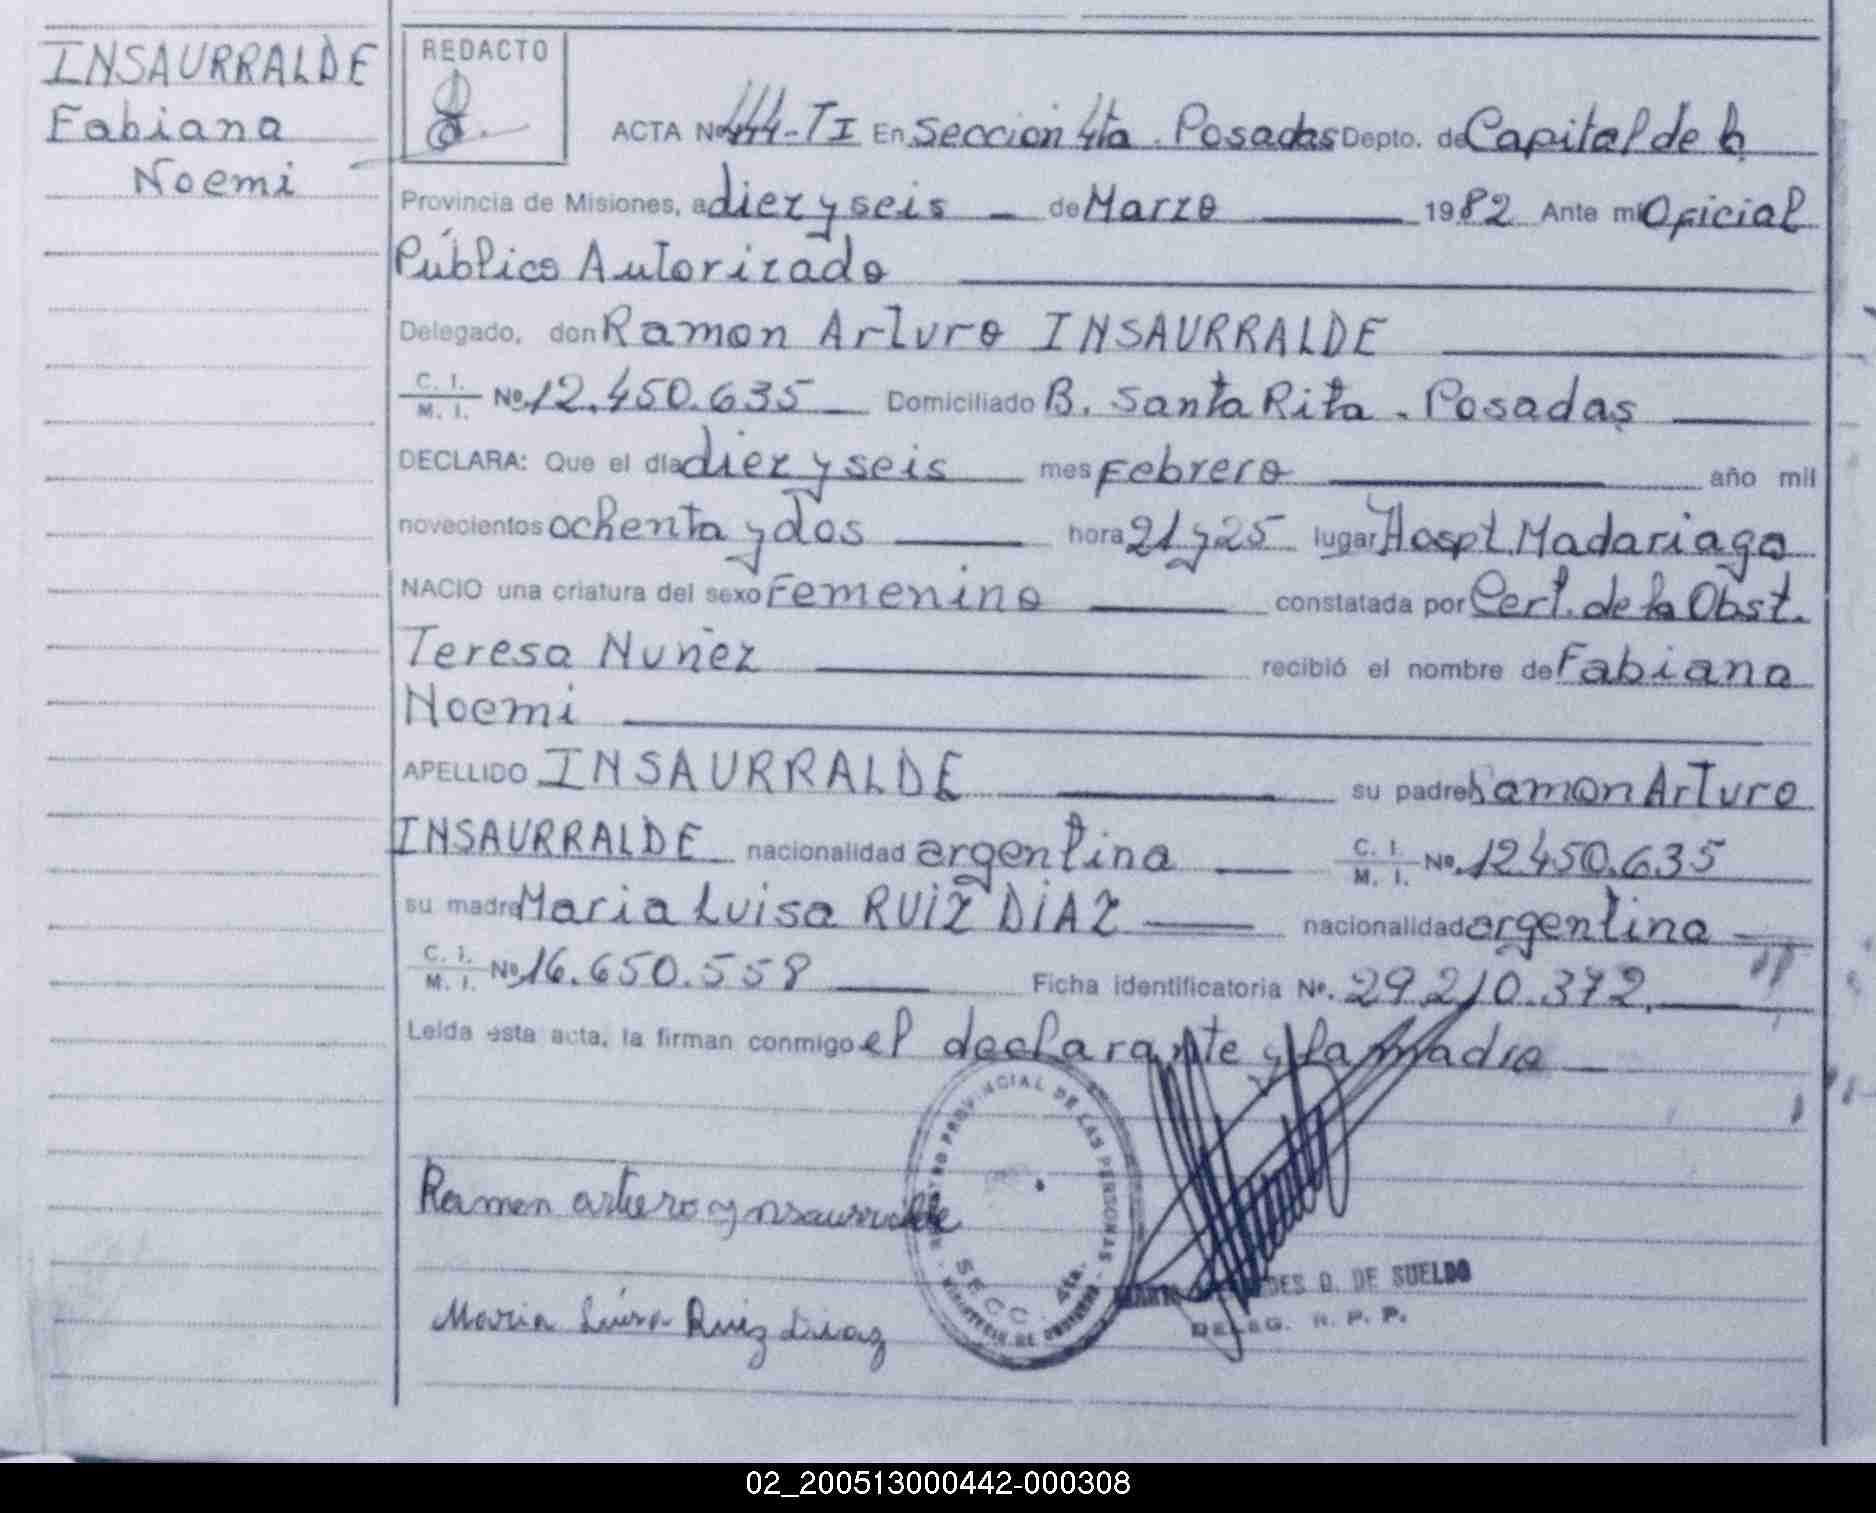 INSAURRALDE
Fabiana
Noemi
REDACTO
ACTA Nº 444-TI En Seccion 4ta. Posadas Depto. de Capital de la
Provincia de Misiones, a diez y seis de Marzo 1982 Ante mi Oficial
Público Autorizado
Delegado, don Ramon Arturo INSAURRALDE
C. I.
M. I. Nº 12.450.635 Domiciliado B. Santa Rita. Posadas
DECLARA: Que el día diez y seis mes Febrero año mil
novecientos ochenta y dos hora 21 y 25 lugar Hospt. Madariaga
NACIO una criatura del sexo Femenino constatada por Cert. de la Obst.
Teresa Nuñez recibió el nombre de Fabiana
Noemi
APELLIDO INSAURRALDE su padre Ramon Arturo
INSAURRALDE nacionalidad argentina C. I.
M. I. Nº 12.450.635
su madre Maria Luisa RUIZ DIAZ nacionalidad argentina
C. I.
M. I. Nº 16.650.558 Ficha identificatoria Nº. 29.210.372.
Leída esta acta, la firman conmigo el declarante y la madre
Ramon arturo ynsaurralde
Maria Luisa Ruiz Diaz
REGISTRO PROVINCIAL DE LAS PERSONAS
SECC. 4ta.
MINISTERIO DE GOBIERNO
D. DE SUELDO
DELEG. R. P. P.
02_200513000442-000308